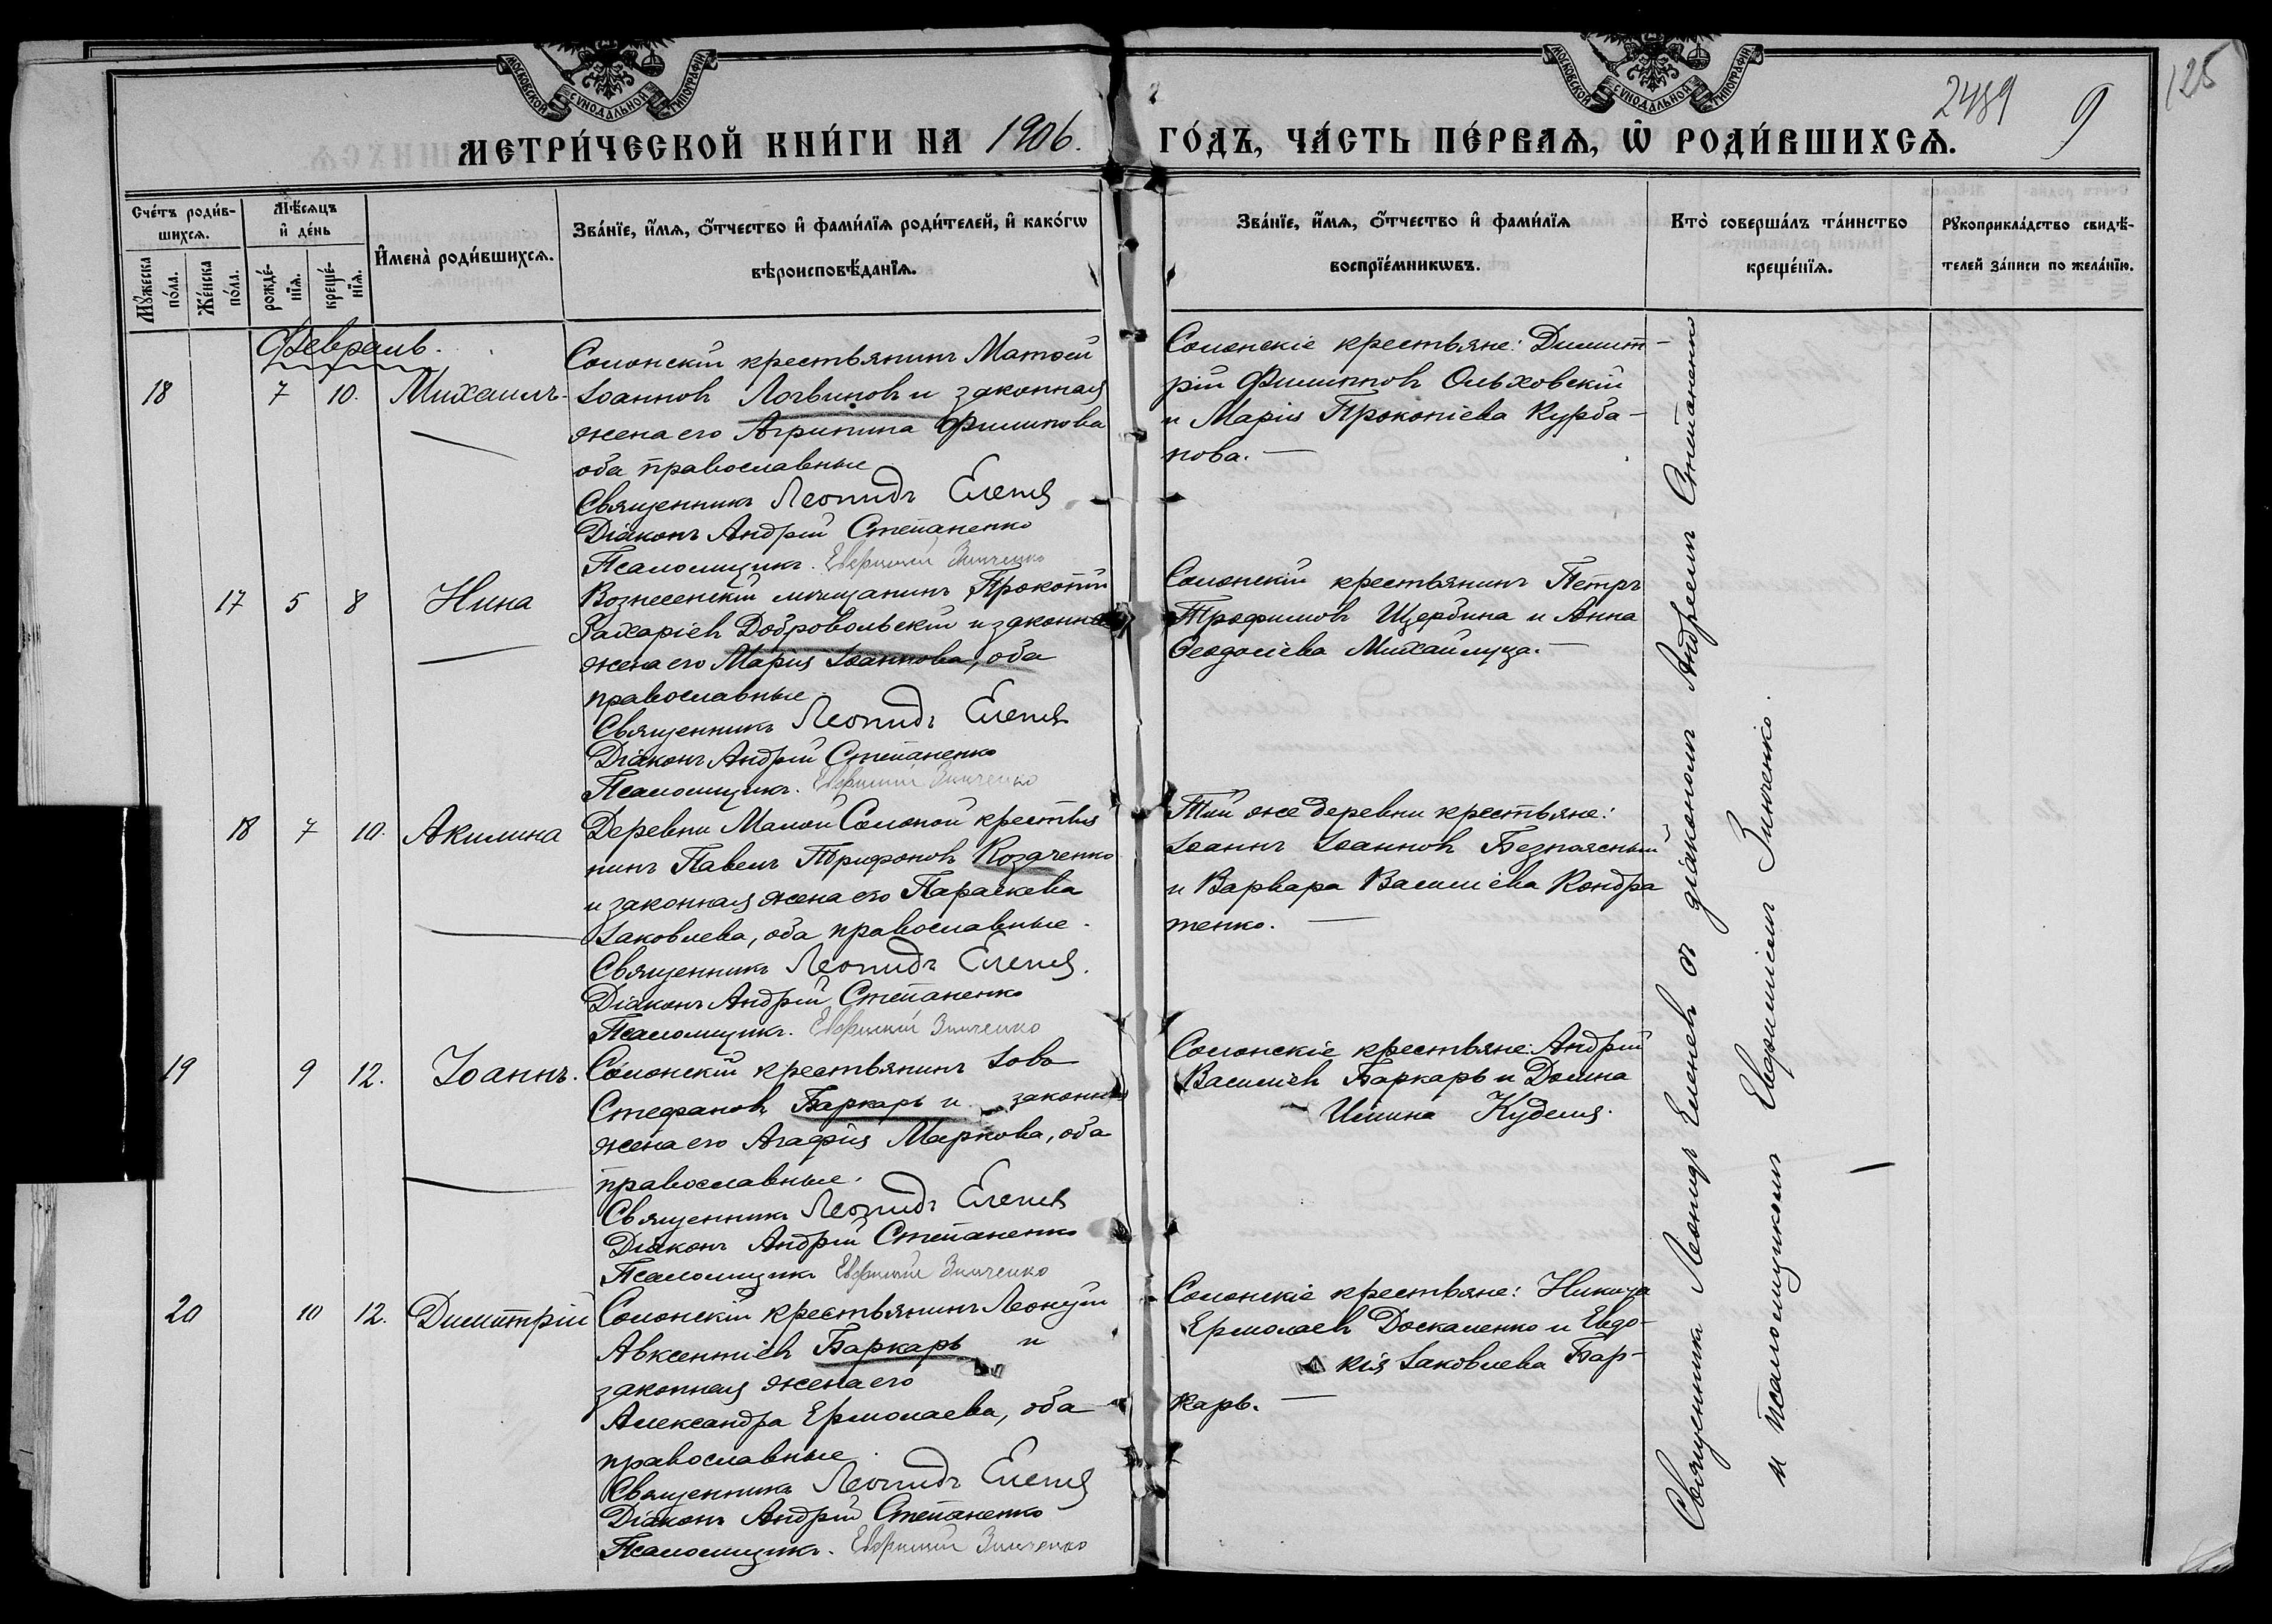 МОСКОВСКОЙ СѴНОДАЛЬНОЙ ТИПОГРАФІИ
МОСКОВСКОЙ СѴНОДАЛЬНОЙ ТИПОГРАФІИ
2489 9 125
МЕТРИ́ЧЕСКОЙ КНИ́ГИ НА 1906. ГО́ДЪ, ЧА́СТЬ ПЕ́РВАѦ, Ѡ҆ РОДИ́ВШИХСѦ.
Сче́тъ роди́в-
шихсѧ.
Мꙋ́жеска
по́ла.
Же́нска
по́ла.
Мѣ́сѧцъ
и҆ де́нь
рожде́-
нїѧ.
креще́-
нїѧ.
И҆мена̀ роди́вшихсѧ.
Зва́нїе, и҆́мѧ, ѻ҆́тчество и҆ фами́лїѧ роди́телей, и҆ како́гѡ
вѣроисповѣ́данїѧ.
Зва́нїе, и҆́мѧ, ѻ҆́тчество и҆ фами́лїѧ
воспрїе́мникѡвъ.
Кто̀ соверша́лъ та́инство
креще́нїѧ.
Рꙋкоприкла́дство свидѣ́-
телей за́писи по жела́нїю.
Февраль.
18 7 10. Михаилъ
Солонскій крестьянинъ Матѳей
Іоанновъ Логвиновъ и законная
жена его Агрипина Филипова
оба православные
Священникъ Леонидъ Еленев
Діаконъ Андрій Степаненко
Псаломщикъ. Евфимій Зинченко
Солонскіе крестьяне: Димит-
рій Филипповъ Ольховскій
и Марія Прокопіева Курба-
нова.
17 5 8 Нина
Вознесенскій мѣщанинъ Прокопій
Захаріевъ Добровольскій и законная
жена его Марія Іоаннова, оба
православные
Священникъ Леонидъ Еленев
Діаконъ Андрій Степаненко
Псаломщикъ. Евфимій Зинченко
Солонскій крестьянинъ Петръ
Трофимовъ Щербина и Анна
Ѳеодосіева Михайлуца.
18 7 10. Акилина
Деревни Малой Солоной крестья
нинъ Павелъ Трифоновъ Козаченко
и законная жена его Параскева
Іаковлева, оба православные.
Священникъ Леонидъ Еленев.
Діаконъ Андрій Степаненко
Псаломщикъ. Евфимій Зинченко
Той же деревни крестьяне:
Іоаннъ Іоанновъ Безпоясный
и Варвара Василіева Кондра
тенко.
19 9 12. Іоаннъ.
Солонскій крестьянинъ Іовъ
Стефановъ Баркарь и законная
жена его Агафія Маркова, оба
православные.
Священникъ Леонидъ Еленев
Діаконъ Андрій Степаненко
Псаломщикъ Евфимій Зинченко
Солонскіе крестьяне: Андрій
Василіевъ Баркарь и Домна
Куделя.
20 10 12. Димитрій
Солонскій крестьянинъ
Авксентіевъ Баркарь и
законная жена его
Александра Ермолаева, оба
православные.
Священникъ Леонидъ Еленев
Діаконъ Андрій Степаненко
Псаломщикъ. Евфимій Зинченко
Солонскіе крестьяне: Никита
Ермолаевъ Доскаленко и Евдо-
кія Іаковлева Бар-
карь.
Священникъ Леонидъ Еленевъ съ діакономъ Андреемъ Степаненко
и псаломщикомъ Евфиміемъ Зинченко.